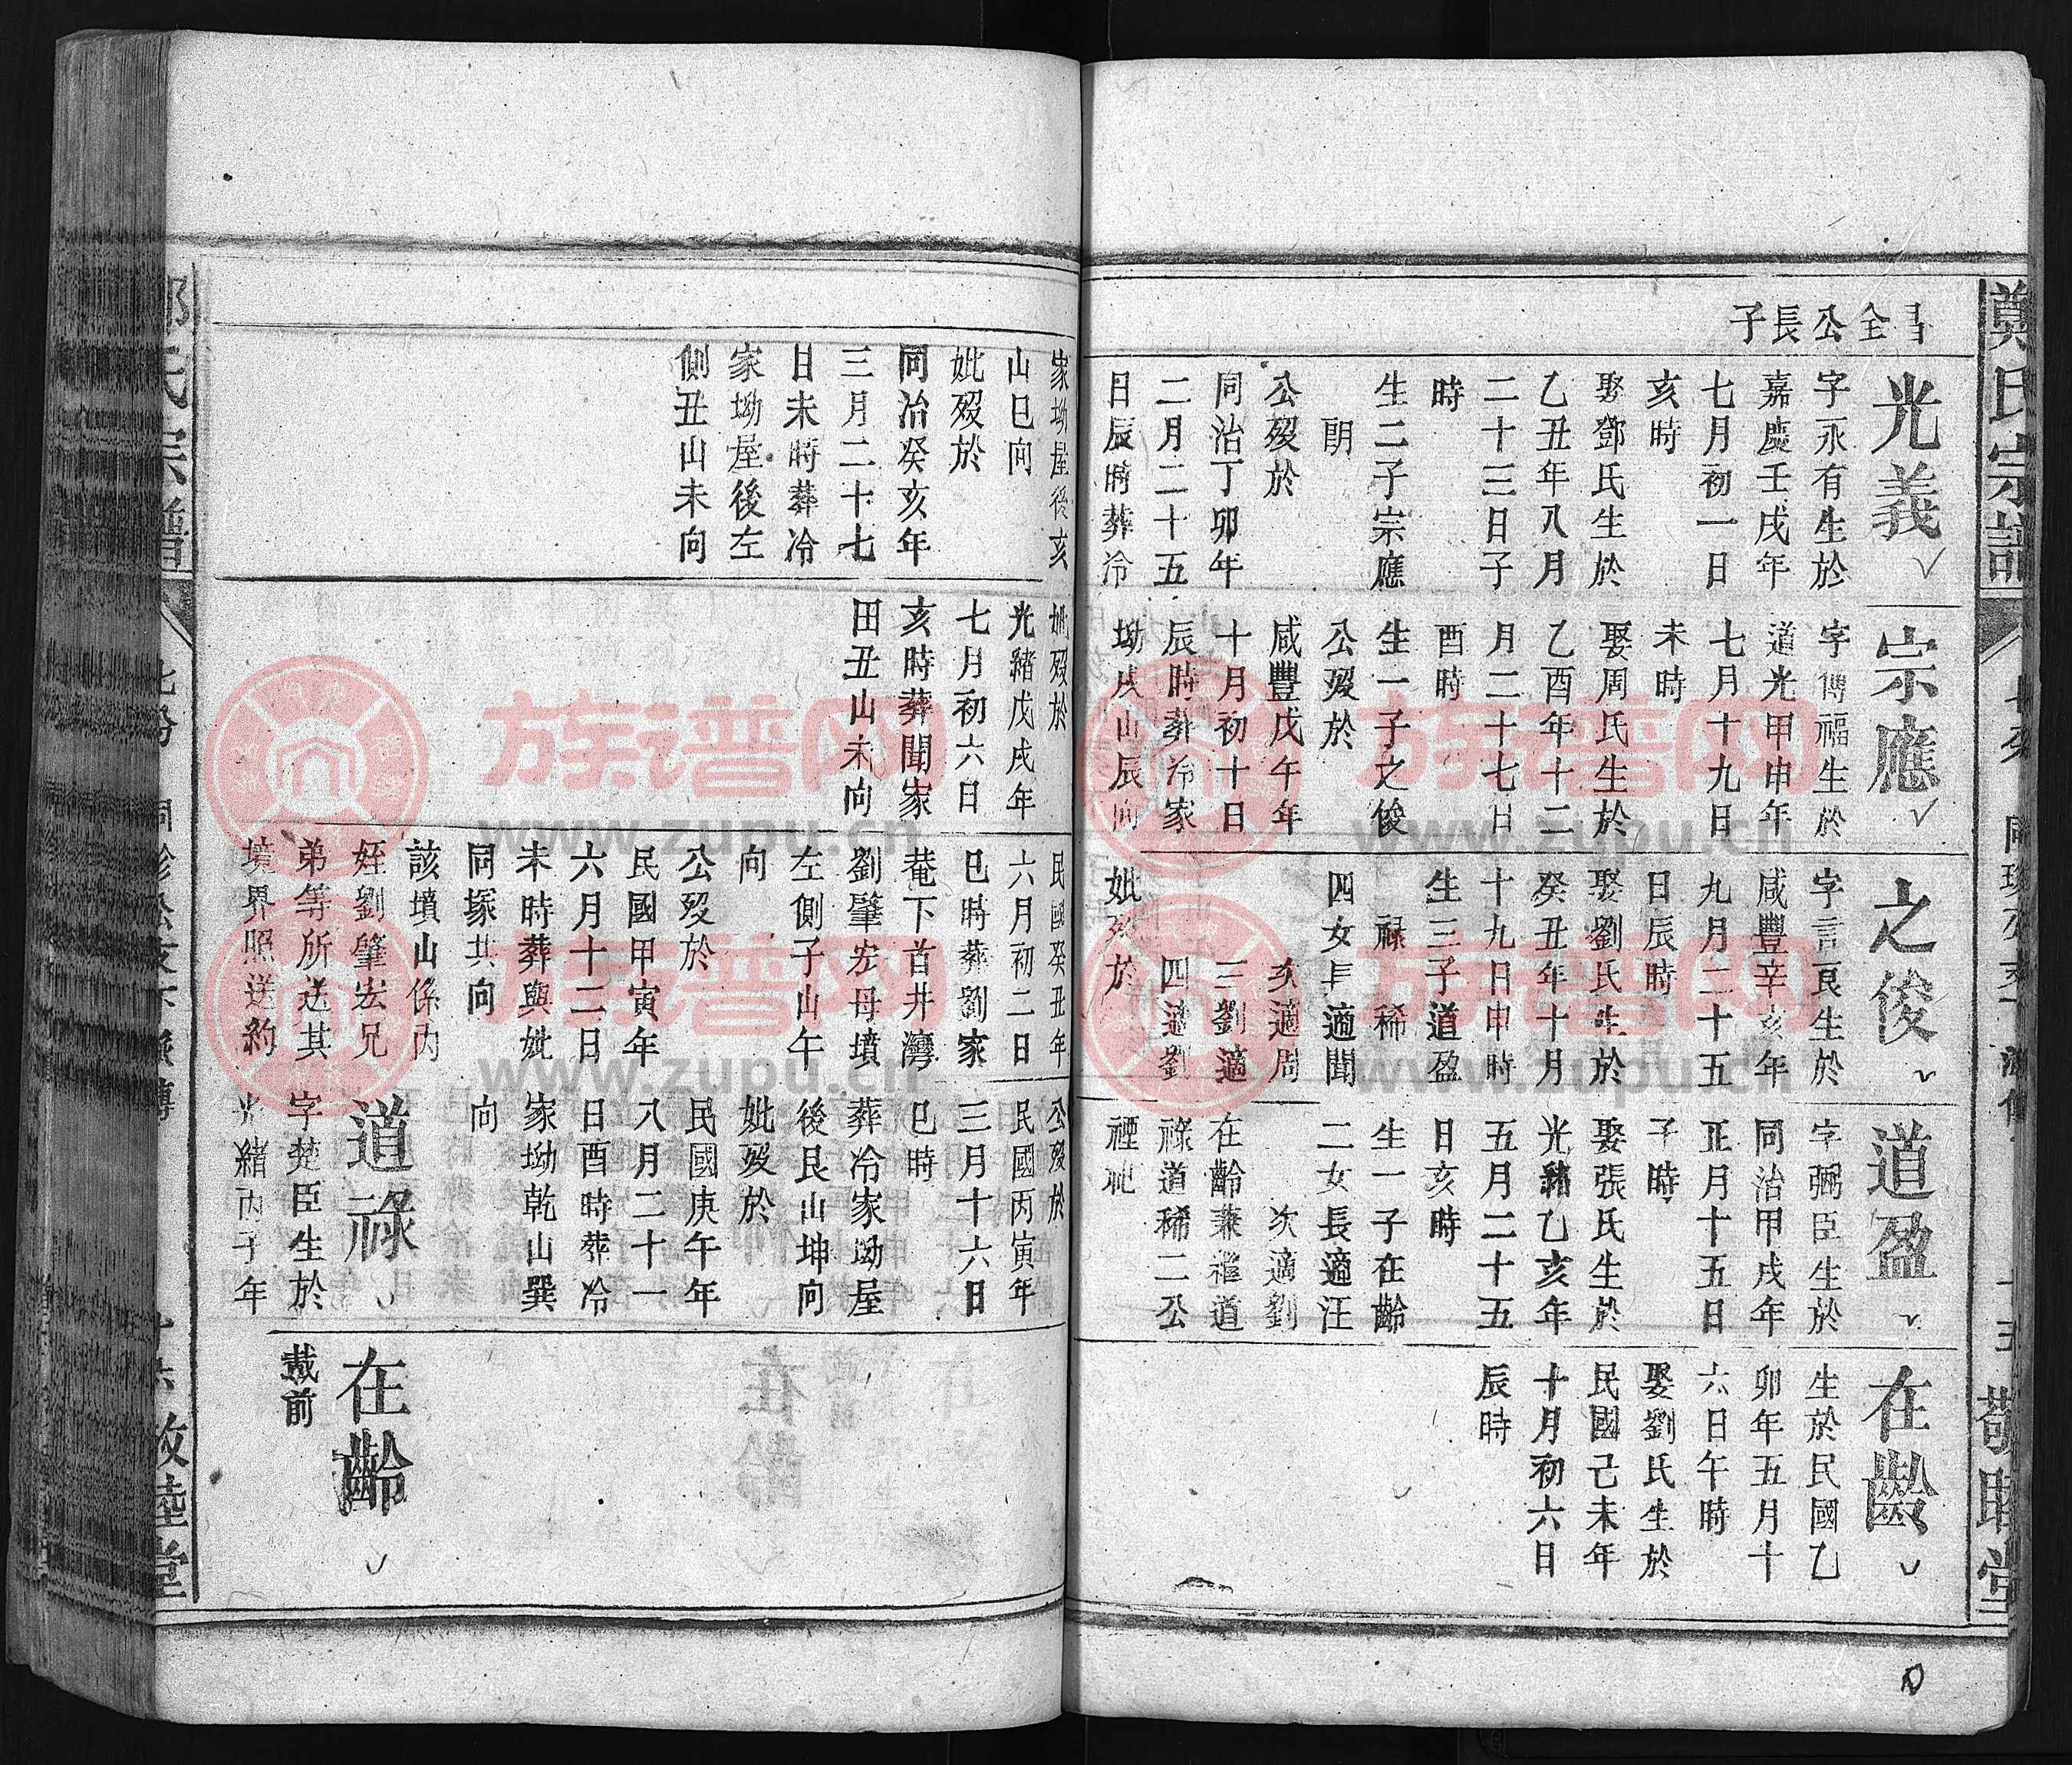 鄭氏宗譜
敬睦堂
全公長子
光義
字永有生於
嘉慶壬戌年
七月初一日
亥時
娶鄧氏生於
乙丑年八月
二十三日子
時
生二子宗應
朗
公歿於
同治丁卯年
二月二十五
日辰時葬冷
宗應
字傳福生於
道光甲申年
七月十九日
未時
娶周氏生於
乙酉年十二
月二十七日
酉時
生一子之俊
公歿於
咸豐戊午年
十月初十日
辰時葬冷家
坳戌山辰向
之俊
字言良生於
咸豐辛亥年
九月二十五
日辰時
娶劉氏生於
癸丑年十月
十九日申時
生三子道盈
祿 稀
四女長適聞
次適周
三劉適
四適劉
妣歿於
道盈
字弼臣生於
同治甲戌年
正月十五日
子時
娶張氏生於
光緒乙亥年
五月二十五
日亥時
生一子在齡
二女長適汪
次適劉
在齡兼祧道
祿道稀二公
禋祀
在齡
生於民國乙
卯年五月十
六日午時
娶劉氏生於
民國己未年
十月初六日
辰時
家坳屋後亥
山巳向
妣歿於
同治癸亥年
三月二十七
日未時葬冷
家坳屋後左
側丑山未向
妣歿於
光緒戊戌年
七月初六日
亥時葬聞家
田丑山未向
民國癸丑年
六月初二日
巳時葬劉家
菴下首井灣
劉肇宏母墳
左側子山午
向
公歿於
民國甲寅年
六月十二日
未時葬與妣
同塚共向
該墳山係內
姪劉肇宏兄
弟等所送其
境界照送約
公歿於
民國丙寅年
三月十六日
巳時
葬冷家坳屋
後艮山坤向
妣歿於
民國庚午年
八月二十一
日酉時葬冷
家坳乾山巽
向
道祿
字楚臣生於
光緒丙子年
在齡
載前
氏宗譜
睦堂
族谱网
www.zupu.cn
族谱网
www.zupu.cn
族谱网
www.zupu.cn
族谱网
www.zupu.cn